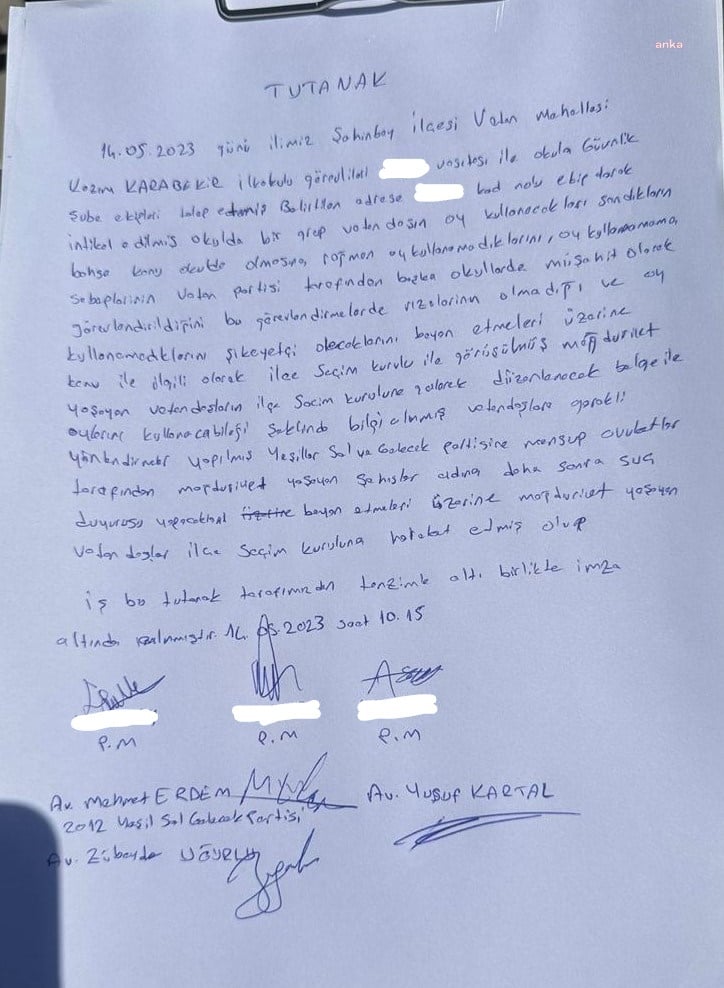 anka
TUTANAK
14.05.2023 günü ilimiz Şahinbey ilçesi Vatan Mahallesi
Kazım KARABEKİR ilkokulu görevlileri vasıtası ile okula Güvenlik
Şube ekipleri talep etmiş Belirtilen adrese kod nolu ekip olarak
intikal edilmiş okulda bir grup vatandaşın oy kullanacakları sandıkların
bahse konu okulda olmasına rağmen oy kullanamadıklarını, oy kullanamama
sebeplerinin Vatan partisi tarafından başka okullarda müşahit olarak
görevlendirildiğini bu görevlendirmelerde rızalarının olmadığı ve oy
kullanamadıklarını şikeyetçi olacaklarını beyan etmeleri üzerine
konu ile ilgili olarak ilçe Seçim kurulu ile görüşülmüş mağduriyet
yaşayan vatandaşların ilçe Seçim kuruluna gelerek düzenlenecek belge ile
oylarını kullanacabileği şeklinde bilgi alınmış vatandaşlara gerekli
yönlendirmeler yapılmış Yeşiller Sol ve Gelecek partisine mensup avukatlar
tarafından mağduriyet yaşayan şahıslar adına daha sonra suç
duyurusu yapacakları üzerine beyan etmeleri üzerine mağduriyet yaşayan
vatandaşlar ilçe Seçim kuruluna hareket edmiş olup
iş bu tutanak tarafımızdan tanzimle altı birlikte imza
altında alınmıştır. 14.05.2023 saat 10.15
P.M P.M P.M
Av. Mehmet ERDEM Av. Yusuf KARTAL
2012 Yeşil Sol Gelecek Partisi
Av. Zübeyde UĞURLU